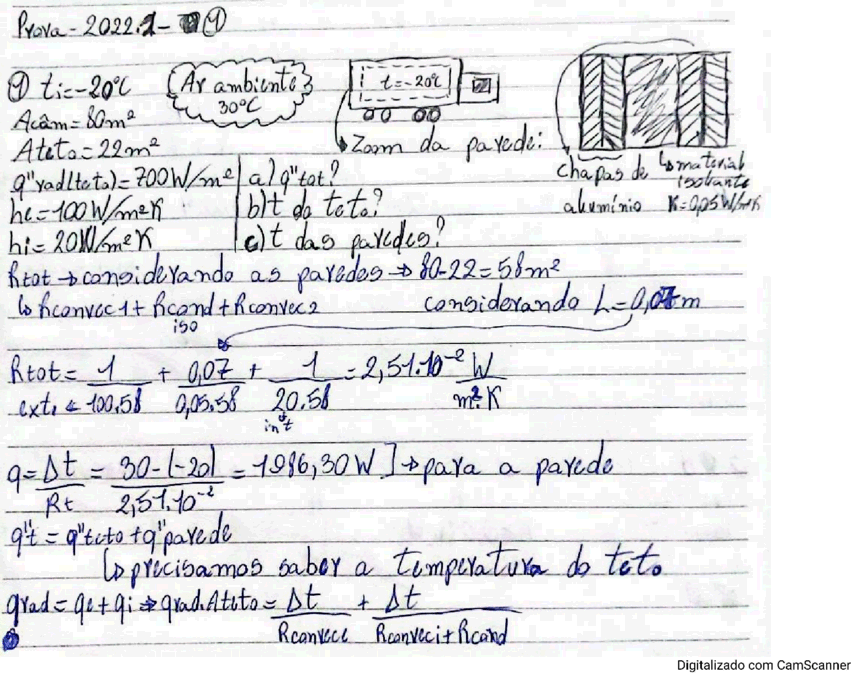 Prova - 2022.1- ①
① ti=-20°C
Ar ambiente
30°C
t=-20°C
Acâm=80m²
Ateto=22m²
Zoom da parede:
chapas de
alumínio
material
isolante
K=0,05W/mK
q"rad(teto)=700W/m² a) q"tot?
he=100W/m²K b) t do teto?
hi=20W/m²K c) t das paredes?
Rtot → considerando as paredes → 80-22=58m²
↳ Rconvec1 + Rcond + Rconvec2 considerando L=0,07m
iso
Rtot = 1/100.58 + 0,07/0,05.58 + 1/20.58 = 2,51.10⁻² W/m².K
ext.
int
q = Δt/Rt = 30-(-20)/2,51.10⁻² = 1986,30W ] → para a parede
q"t = q"teto + q"parede
↳ precisamos saber a temperatura do teto
qrad = qe + qi → qrad.Ateto = Δt/Rconvece + Δt/Rconveci+Rcond
Digitalizado com CamScanner